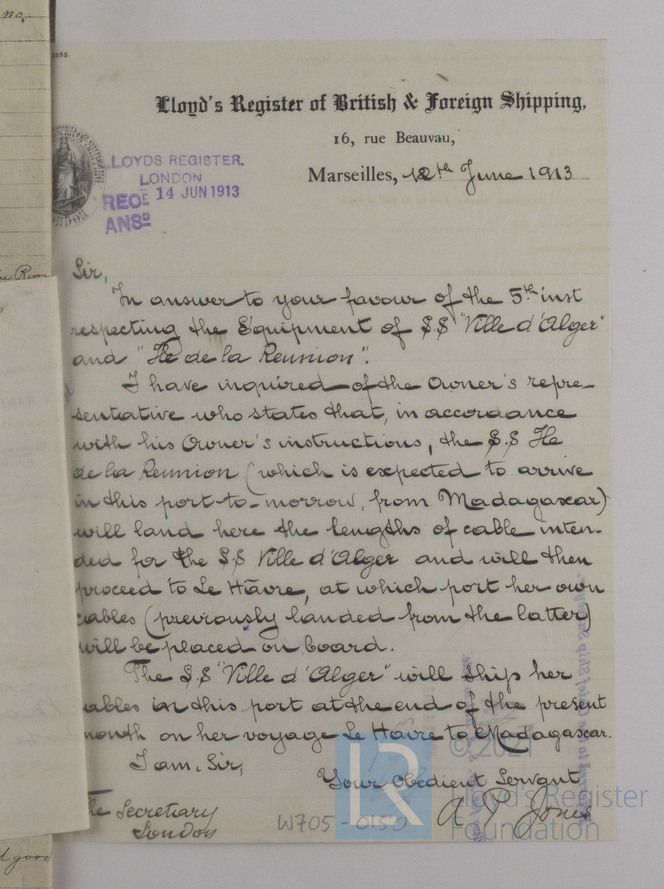 Lloyd's Register of British & Foreign Shipping,
16, rue Beauvau,
Marseilles, 12th June 1913
LLOYDS REGISTER.
LONDON
RECD 14 JUN 1913
ANSD
Sir,
In answer to your favour of the 5th inst
respecting the Equipment of S.S "Ville d'Alger"
and "Ile de la Reunion".
I have inquired of the Owner's repre-
sentative who states that, in accordance
with his Owner's instructions, the S.S Ile
de la Reunion (which is expected to arrive
in this port to-morrow, from Madagascar)
will land here the lengths of cable inten-
ded for the S.S Ville d'Alger and will then
proceed to Le Hâvre, at which port her own
cables (previously landed from the latter)
will be placed on board.
The S.S "Ville d'Alger" will ship her
cables in this port at the end of the present
month on her voyage Le Havre to Madagascar.
I am, Sir,
Your Obedient Servant
A. P. Jones
The Secretary
London
W705-0150
© 2021
Lloyd's Register
Foundation
LR